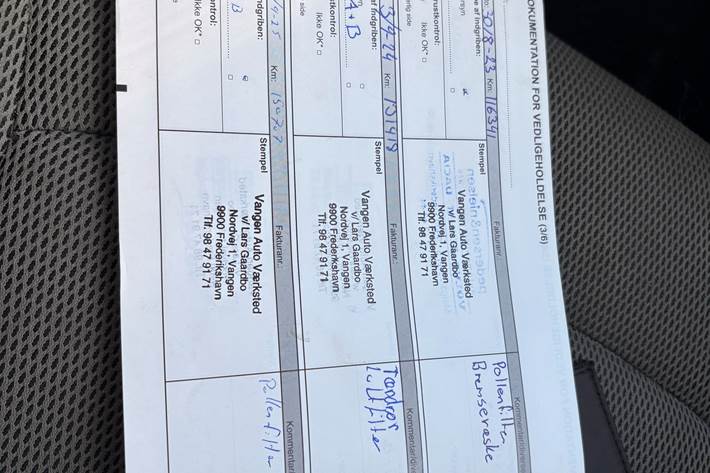 DOKUMENTATION FOR VEDLIGEHOLDELSE (3/6)
8-23 Km: 116341
Fakturanr.:
Kommentar/
e af indgriben:
Stempel
Pollenfilter
Bremsevæske
rustkontrol:
Ikke OK* □
Vangen Auto Værksted
v/ Lars Gaardbo
Nordvej 1, Vangen
9900 Frederikshavn
Tlf. 98 47 91 71
Km: 131419
Fakturanr.:
Kommentar/
af indgriben:
Stempel
A + B
Tændrør
Luftfilter
stkontrol:
Ikke OK* □
Vangen Auto Værksted
v/ Lars Gaardbo
Nordvej 1, Vangen
9900 Frederikshavn
Tlf. 98 47 91 71
Km: 150707
Fakturanr.:
Kommentar
indgriben:
Stempel
B
Pollenfilter
ontrol:
kke OK* □
Vangen Auto Værksted
v/ Lars Gaardbo
Nordvej 1, Vangen
9900 Frederikshavn
Tlf. 98 47 91 71